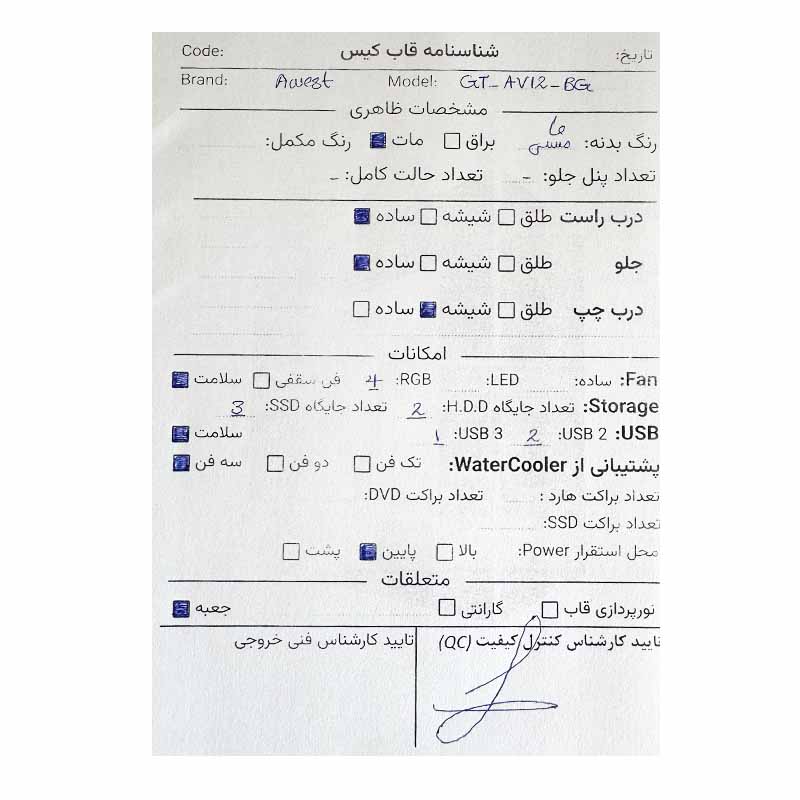 شناسنامه قاب کیس
تاریخ:
Code:
Brand: Awest Model: GT-AV12-BG
مشخصات ظاهری
رنگ بدنه: مشکی براق ☐ مات ■ رنگ مکمل:
تعداد پنل جلو: - تعداد حالت کامل: -
درب راست طلق ☐ شیشه ☐ ساده ■
جلو طلق ☐ شیشه ☐ ساده ■
درب چپ طلق ☐ شیشه ■ ساده ☐
امکانات
Fan: ساده: LED: RGB: 4 فن سقفی ☐ سلامت ■
Storage: تعداد جایگاه H.D.D: 2 تعداد جایگاه SSD: 3
USB: USB 2: 2 USB 3: 1 سلامت ■
پشتیبانی از WaterCooler: تک فن ☐ دو فن ☐ سه فن ■
تعداد براکت هارد : تعداد براکت DVD:
تعداد براکت SSD:
محل استقرار Power: بالا ☐ پایین ■ پشت ☐
متعلقات
نورپردازی قاب ☐ گارانتی ☐ جعبه ■
تایید کارشناس کنترل کیفیت (QC)
تایید کارشناس فنی خروجی